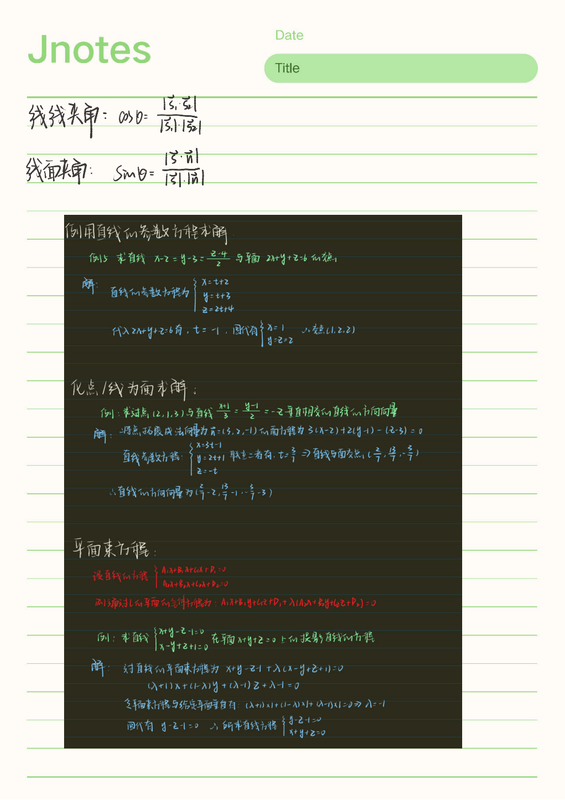 Jnotes
Date
Title
线线夹角: cosθ = |s₁·s₂| / |s₁|·|s₂|
线面夹角: sinθ = |s·n| / |s|·|n|
例用直线的参数方程求解
例5 求直线 x-2=y-3=(z-4)/2 与平面 2x+y+z=6 的交点
解: 直线的参数方程为 { x=t+2
y=t+3
z=2t+4
代入2x+y+z=6有, t=-1, 回代有 { x=1
y=z=2 ∴交点(1,2,2)
化点/线为面求解:
例: 求过点(2,1,3)与直线 (x+1)/3 = (y-1)/2 = -z 垂直相交的直线的方向向量
解: 将点拓展成法向量为n=(3,2,-1)的面方程为 3(x-2)+2(y-1)-(z-3)=0
直线参数方程: { x=3t-1
y=2t+1
z=-t 联立二者有, t=3/7 ⇒ 直线与面交点(2/7, 13/7, -3/7)
∴直线的方向向量为(2/7-2, 13/7-1, -3/7-3)
平面束方程:
设直线的方程 { A₁x+B₁y+C₁z+D₁=0
A₂x+B₂y+C₂z+D₂=0
则通过L的平面的方程为: A₁x+B₁y+C₁z+D₁+λ(A₂x+B₂y+C₂z+D₂)=0
例: 求直线 { x+y-z-1=0
x-y+z+1=0 在平面x+y+z=0上的投影直线的方程
解: 过直线的平面束方程为 x+y-z-1+λ(x-y+z+1)=0
(λ+1)x+(1-λ)y+(λ-1)z+λ-1=0
令平面束方程与给定平面垂直有: (λ+1)×1+(1-λ)×1+(λ-1)×1=0 ⇒ λ=-1
回代有 y-z-1=0 ∴所求直线方程 { y-z-1=0
x+y+z=0